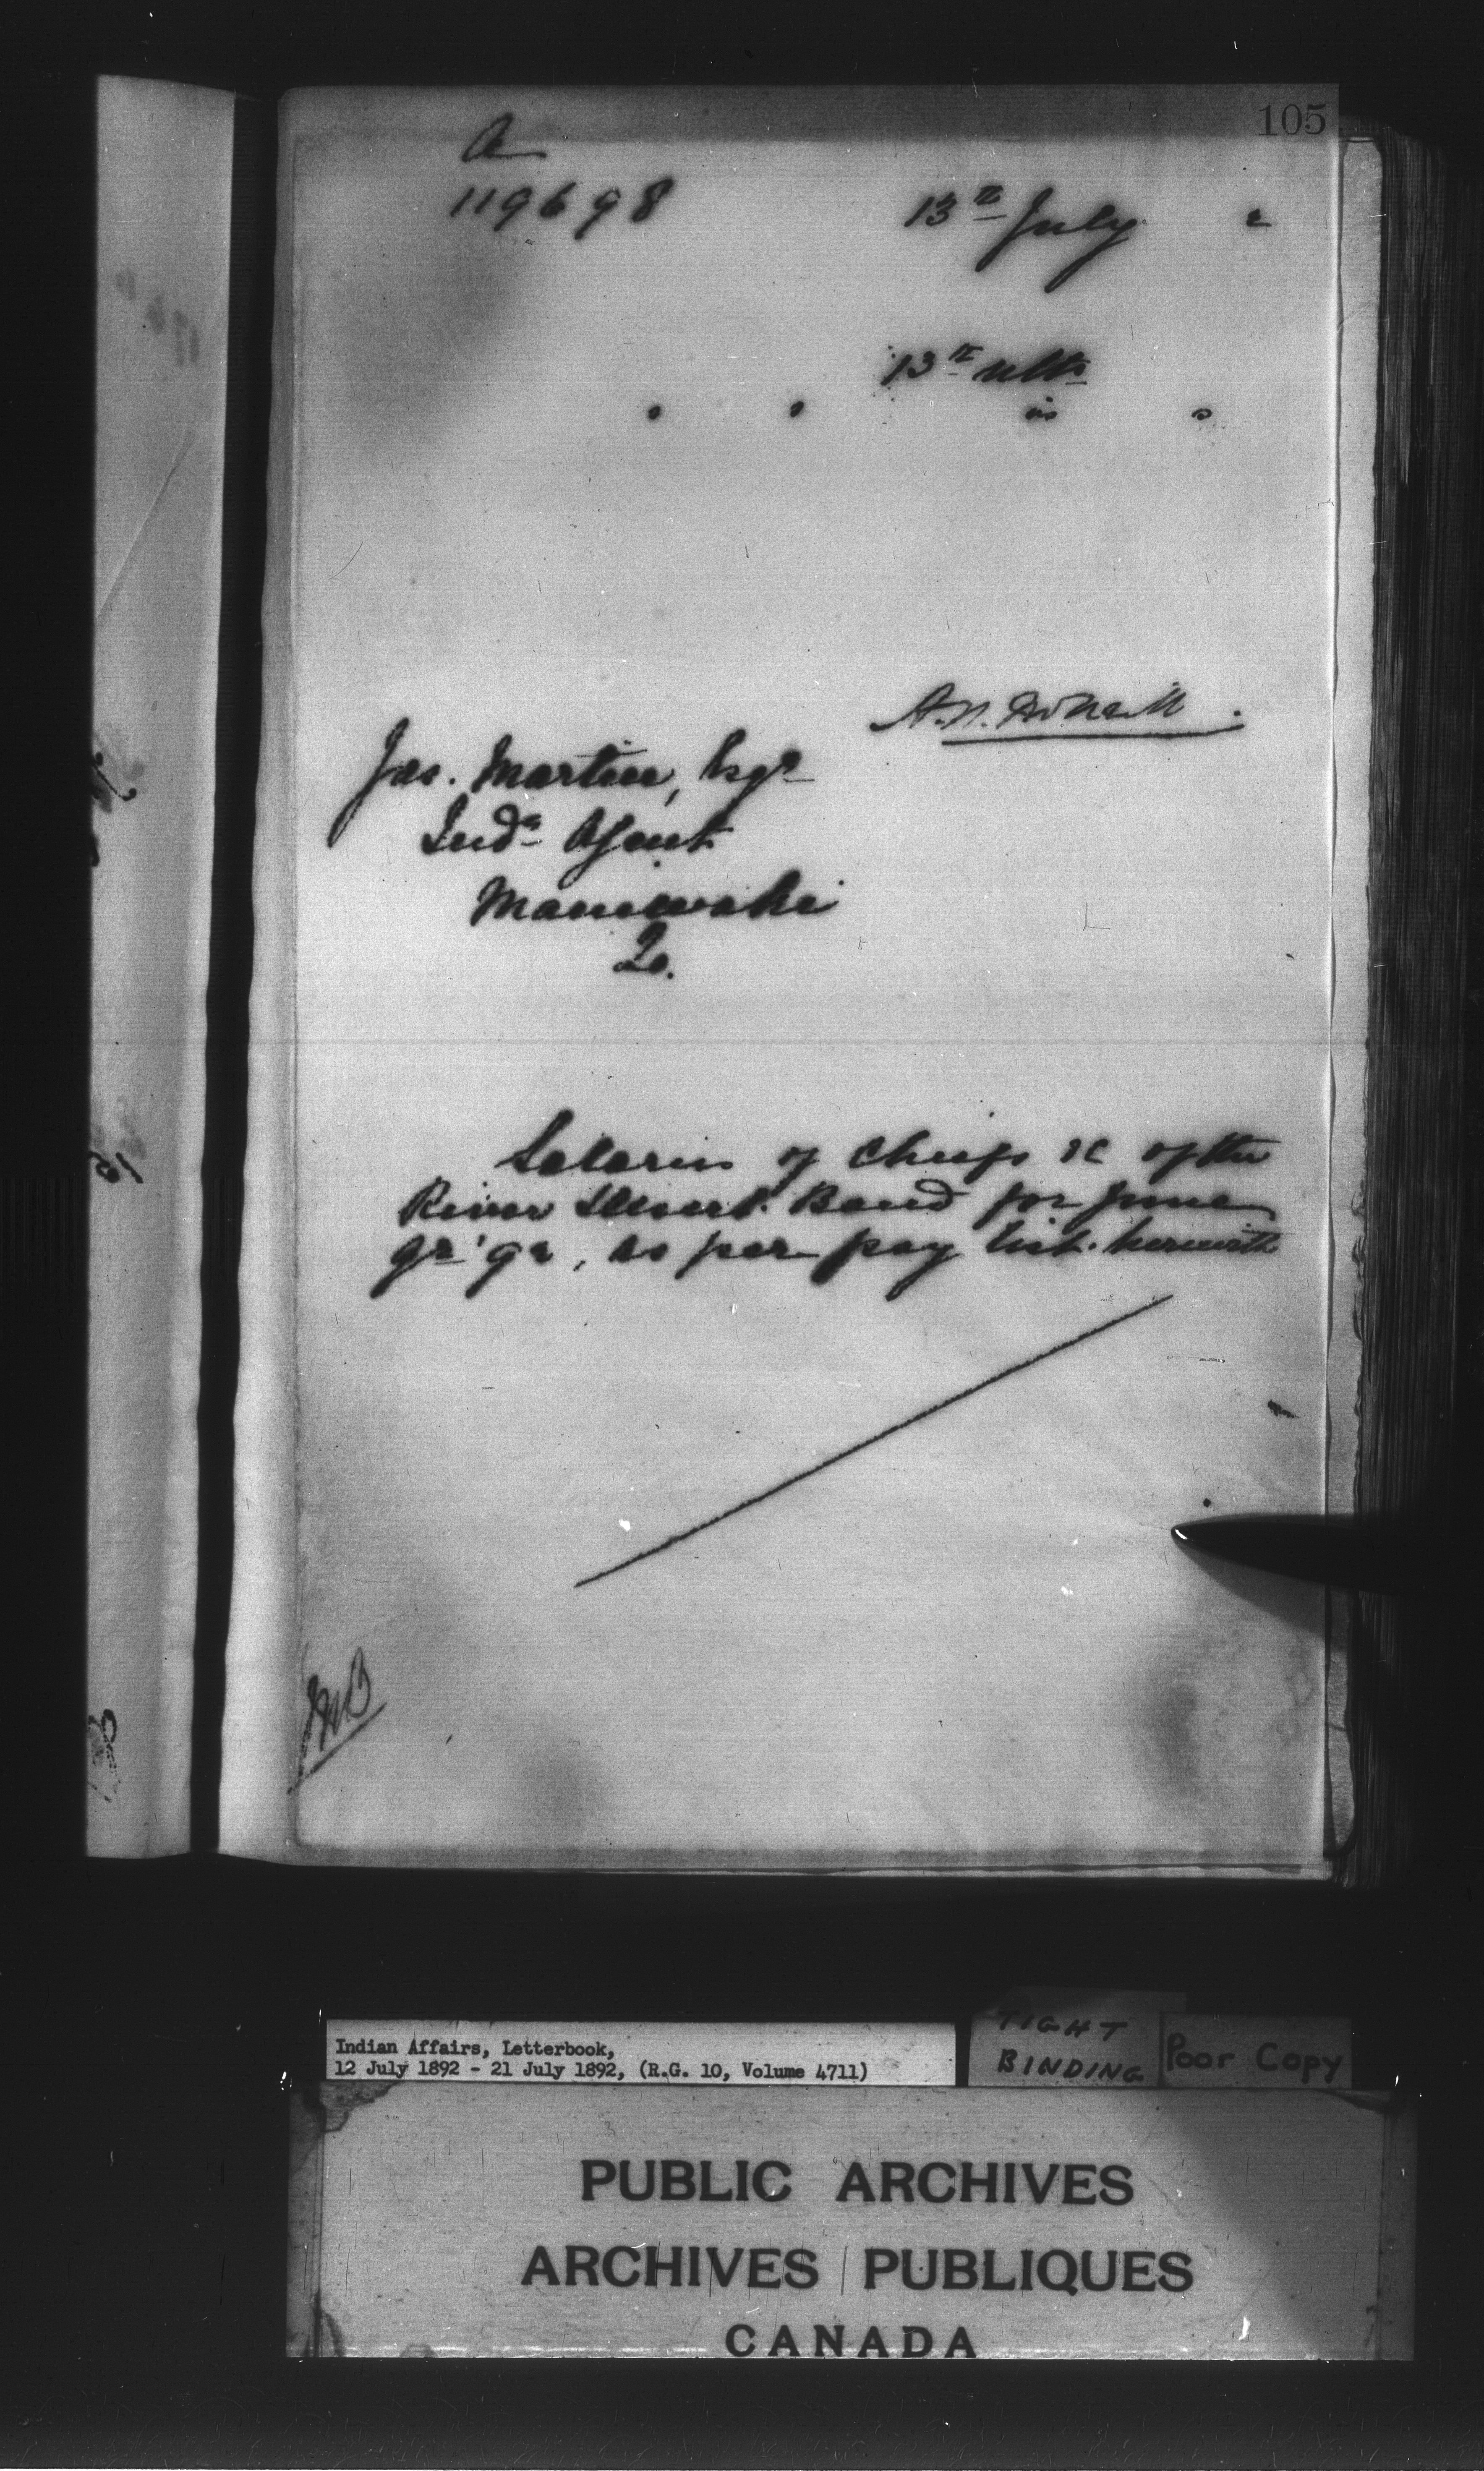 105
A
119698
13th July 2
13th ulto
is
Jas. Martin, Esqr
Indn Agent
Maniwaki
Q.
Salaries of Chiefs &c of the
River Desert Band for June
qr '92, as per pay list herewith
Indian Affairs, Letterbook,
12 July 1892 - 21 July 1892, (R.G. 10, Volume 4711)
TIGHT
BINDING
Poor Copy
PUBLIC ARCHIVES
ARCHIVES PUBLIQUES
CANADA